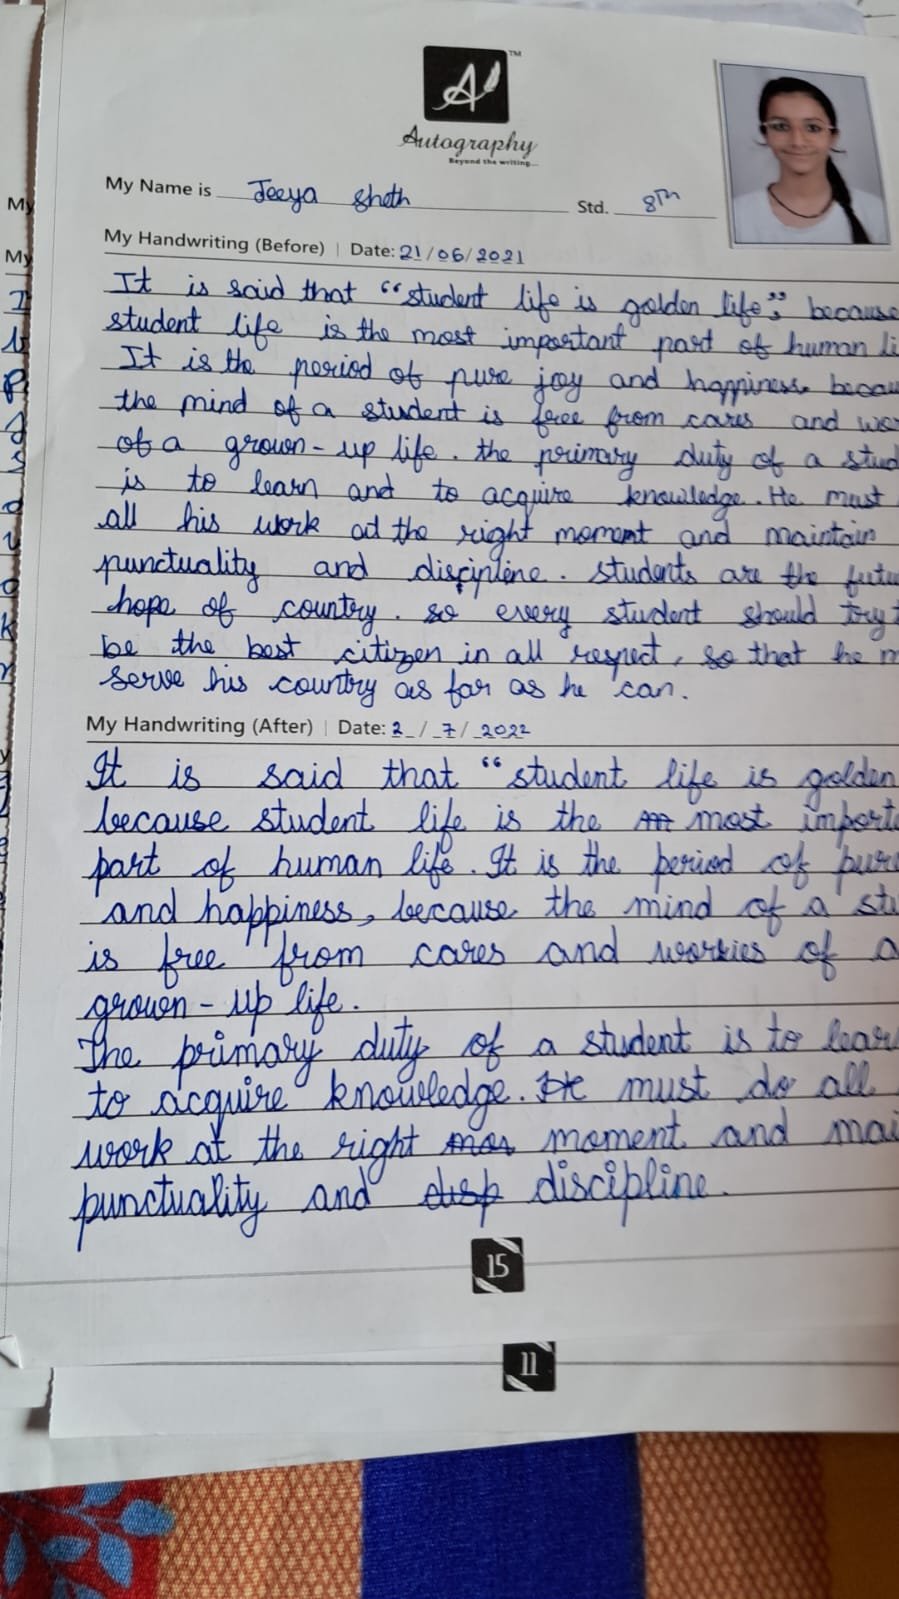 A
TM
Autography
Beyond the writing...
My Name is Jeeya Sheth Std. 8TH
My Handwriting (Before) | Date: 21/06/2021
It is said that "student life is golden life", because
student life is the most important part of human li
It is the period of pure joy and happiness. becau
the mind of a student is free from cares and wor
of a grown-up life. the primary duty of a stud
is to learn and to acquire knowledge. He must
all his work at the right moment and maintain
punctuality and discipline. students are the futu
hope of country. so every student should try t
be the best citizen in all respect, so that he m
serve his country as far as he can.
My Handwriting (After) | Date: 2/7/2022
It is said that "student life is golden
because student life is the most importa
part of human life. It is the period of pure
and happiness, because the mind of a stu
is free from cares and worries of a
grown-up life.
The primary duty of a student is to lear
to acquire knowledge. He must do all
work at the right moment and mai
punctuality and disp discipline.
15
11
My
My